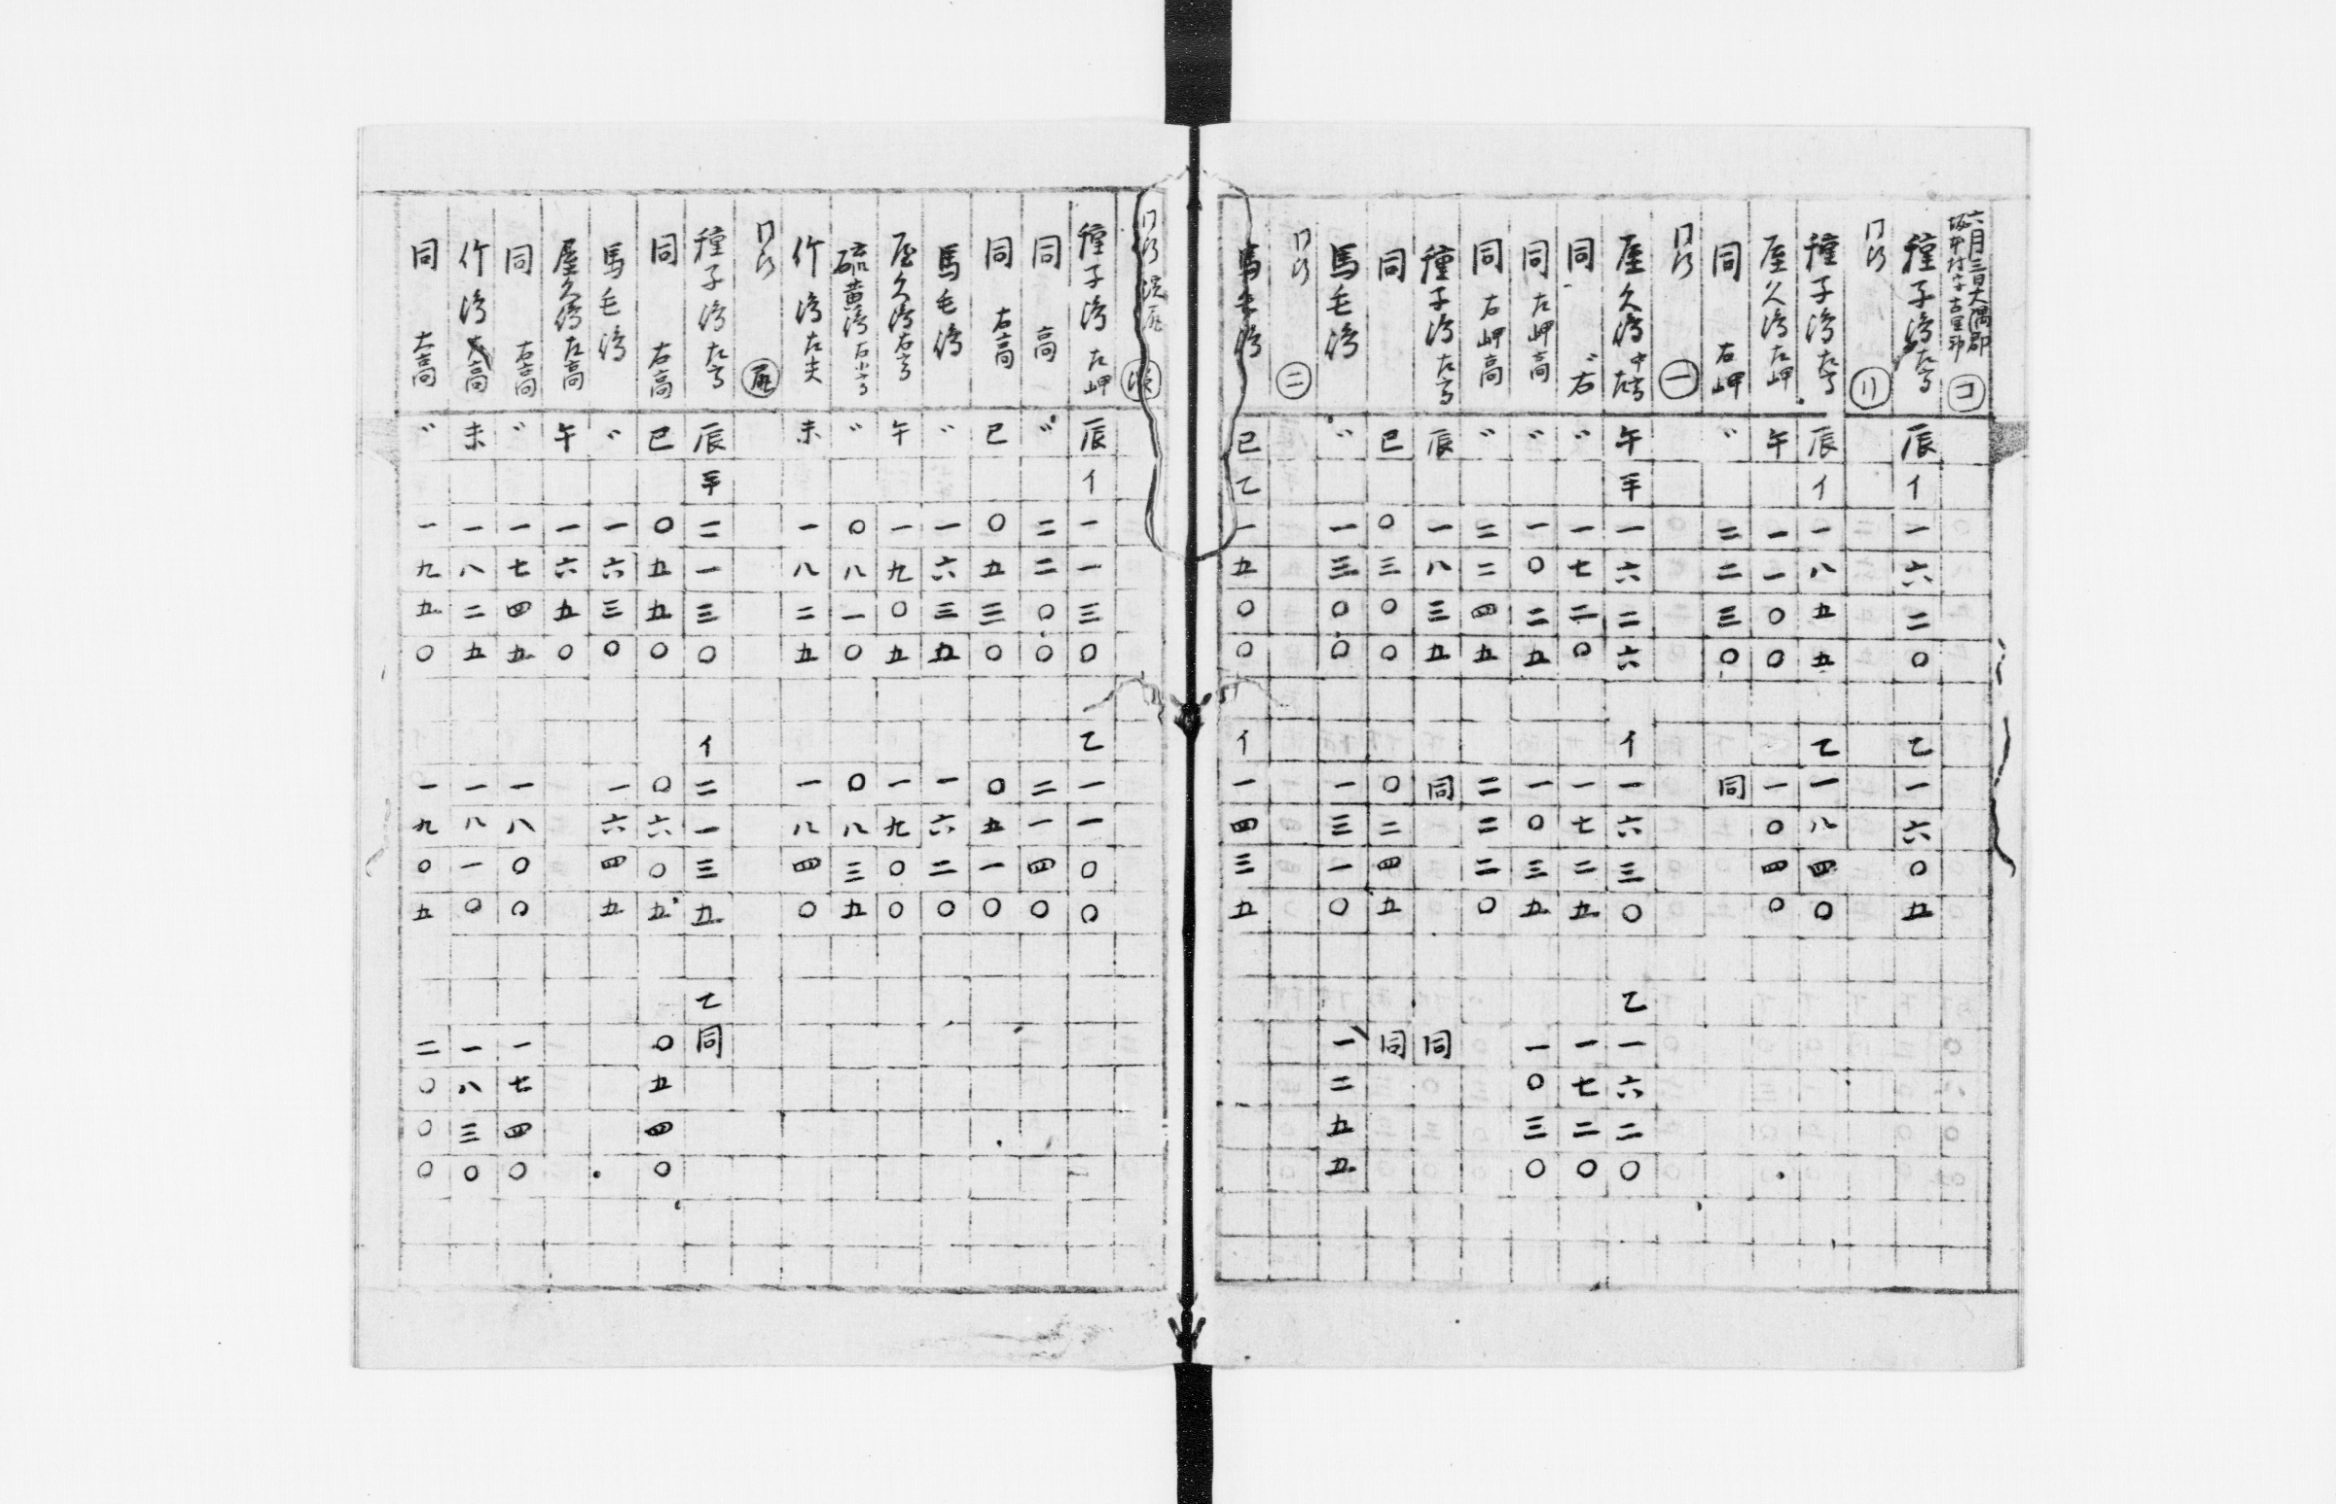 六月三日大隅郡
村字古里 コ
種子島左高 辰 イ 一六二〇 乙 一六〇五
同所 リ
種子島左高 辰 イ 一八五五 乙 一八四〇
屋久島左岬 午 一一〇〇 一〇四〇
同 右岬 〃 三二三〇 同
同所 一
屋久島中左高 午 半 一六二六 イ 一六三〇 乙 一六二〇
同 〃右 〃 一七二〇 一七二五 一七二〇
同 左岬高 〃 一〇二五 一〇三五 一〇三〇
同 右岬高 〃 二二四五 二二二〇
種子島左高 辰 一八三五 同 同
同 巳 〇三〇〇 〇二四五 同
馬毛島 〃 一三〇〇 一三一〇 一二五五
同所 二
馬毛島 巳 乙 一五〇〇 イ 一四三五
同所
種子島左岬 辰 イ 一一三〇 乙 一一〇〇
同 高 〃 二二〇〇 二一四〇
同 右高 巳 〇五三〇 〇五一〇
馬毛島 〃 一六三五 一六二〇
屋久島右高 午 一九〇五 一九〇〇
硫黄島右小高 〃 〇八一〇 〇八三五
竹島左 未 一八二五 一八四〇
同所
種子島左高 辰 半 二一三〇 イ 二一三五 乙 同
同 右高 巳 〇五五〇 〇六〇五 〇五四〇
馬毛島 〃 一六三〇 一六四五
屋久島左高 午 一六五〇
同 右高 〃 一七四五 一八〇〇 一七四〇
竹島高 未 一八二五 一八一〇 一八三〇
同 大高 〃 一九五〇 一九〇五 二〇〇〇